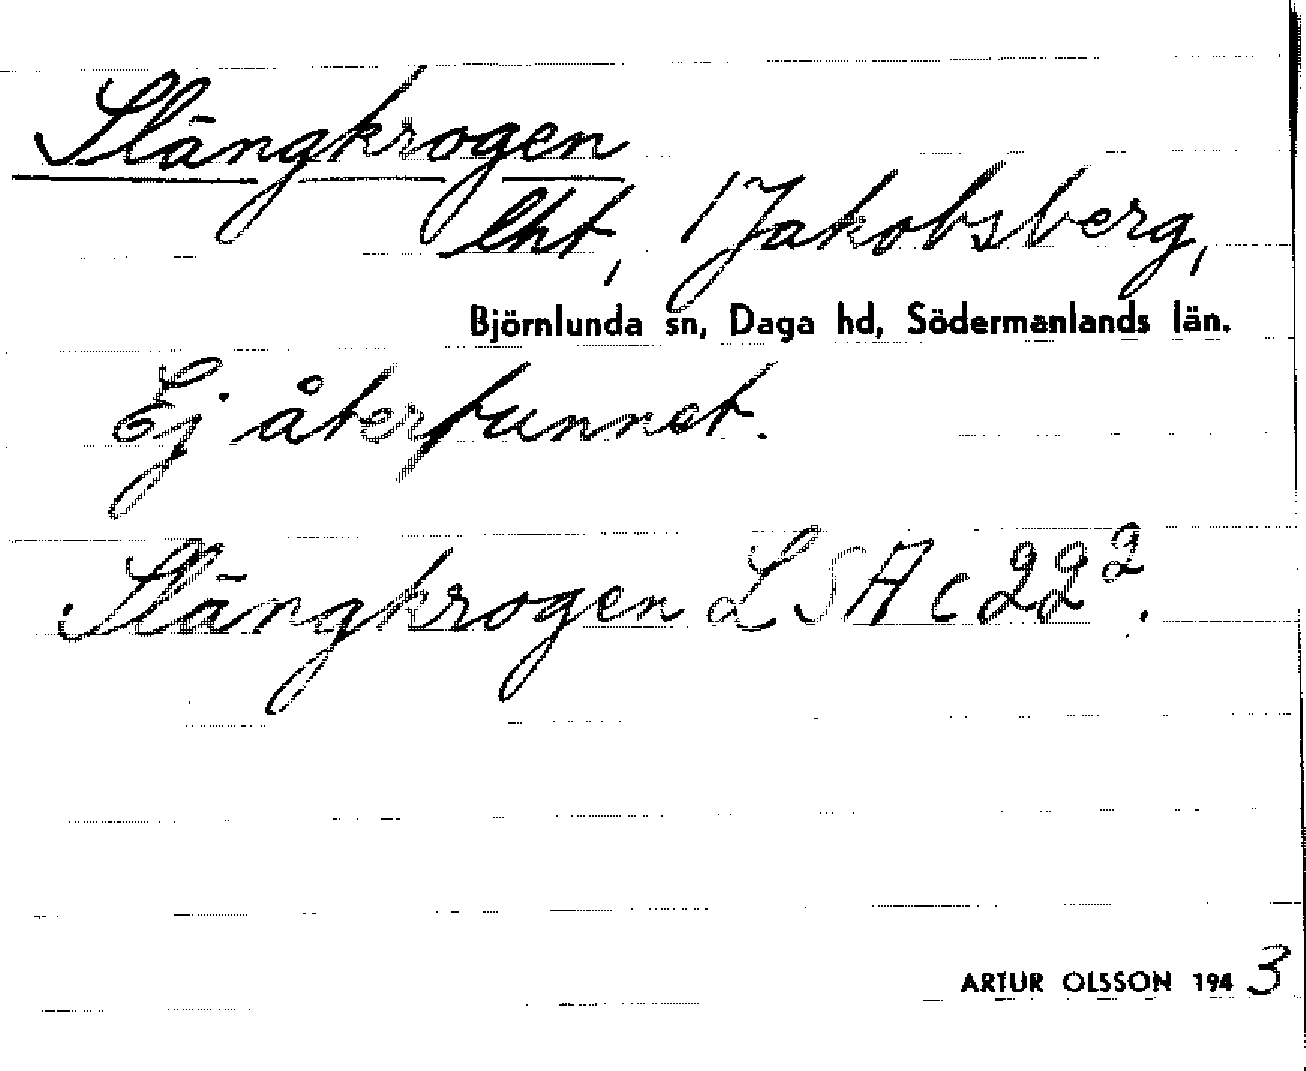 Slängkrogen
lht, 1 Jakobsberg,
Björnlunda sn, Daga hd, Södermanlands län.
Ej återfunnet.
Slängkrogen LSA c 22².
ARTUR OLSSON 1943